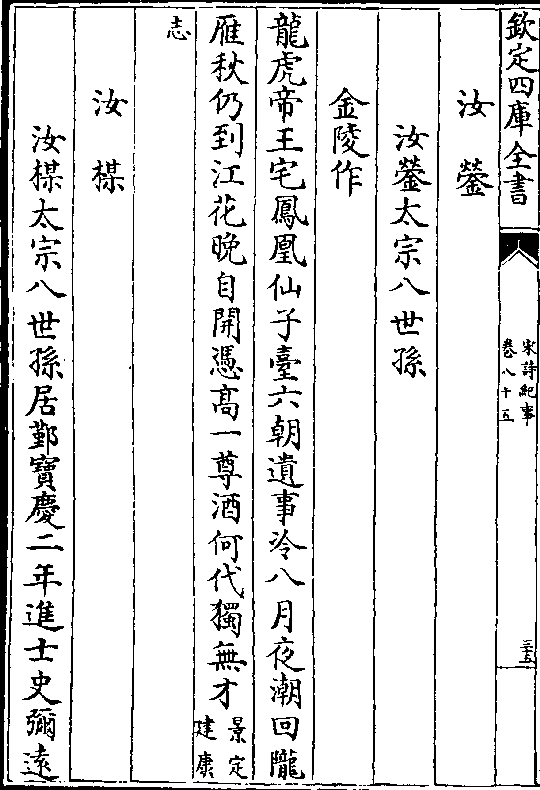 欽定四庫全書
宋詩紀事
卷八十五
三五
汝鎣
汝鎣太宗八世孫
金陵作
龍虎帝王宅鳳凰仙子臺六朝遺事冷八月夜潮回隴
雁秋仍到江花晚自開憑高一尊酒何代獨無才景定建康
志
汝楳
汝楳太宗八世孫居鄞寶慶二年進士史彌遠